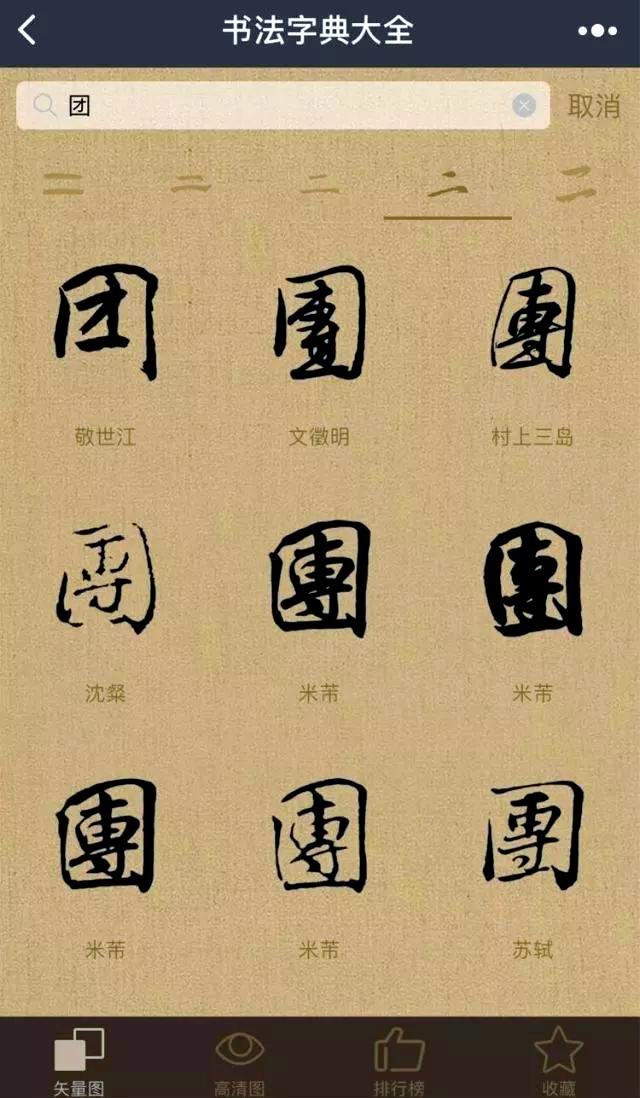 书法字典大全
团
取消
二 二 二 二 二
团 團 團
敬世江 文徵明 村上三岛
團 團 團
沈粲 米芾 米芾
團 團 團
米芾 米芾 苏轼
矢量图 高清图 排行榜 收藏